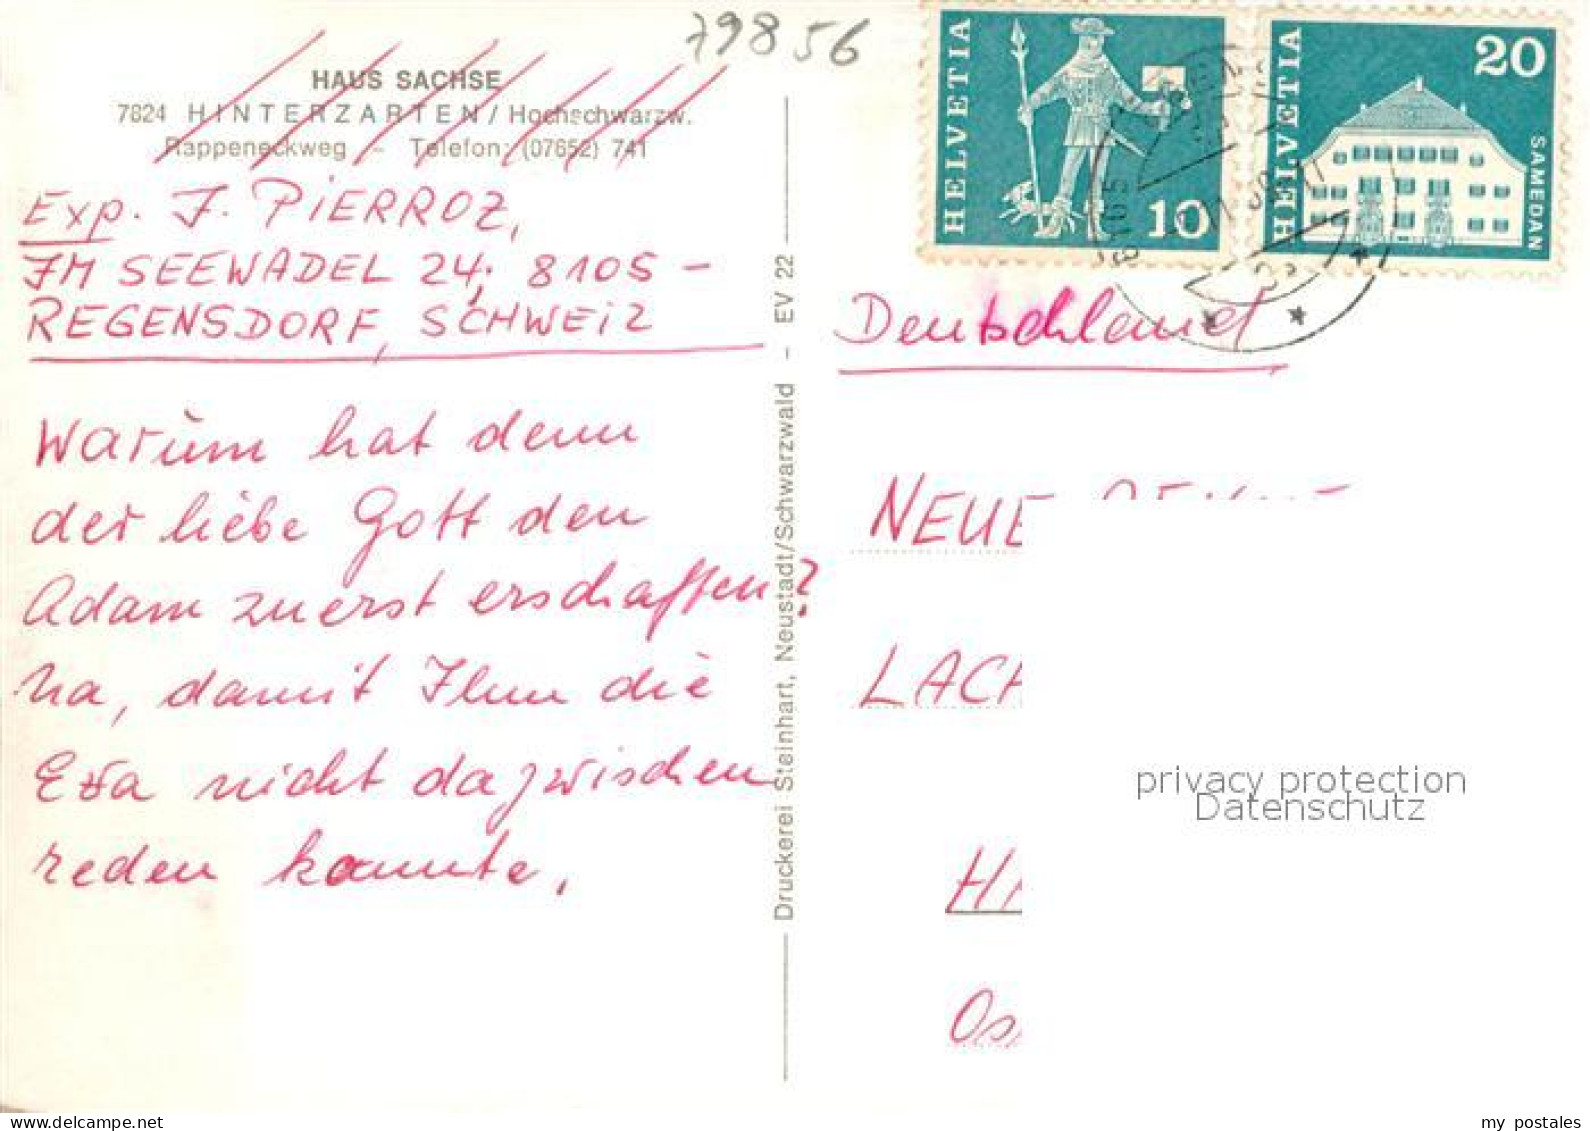 79856
HAUS SACHSE
7824 HINTERZARTEN / Hochschwarzw.
Rappeneckweg - Telefon: (07652) 741
Exp. J. PIERROZ,
IM SEEWADEL 24, 8105 -
REGENSDORF, SCHWEIZ
Warum hat denn
der liebe Gott den
Adam zuerst erschaffen?
Na, damit Ihm die
Eva nicht dazwischen
reden konnte.
Druckerei Steinhart, Neustadt/Schwarzwald - EV 22
HELVETIA
10
HELVETIA
20
SAMEDAN
8105
Deutschland
NEUE
LACH
privacy protection
Datenschutz
my postales